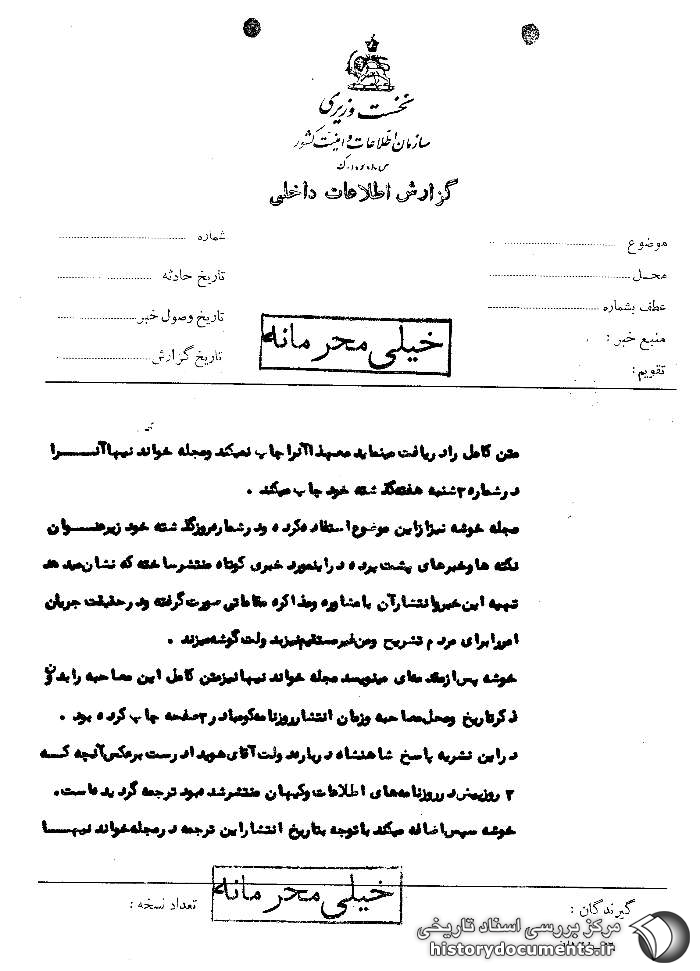 نخست وزیری
سازمان اطلاعات و امنیت کشور
س.ا.و.ا.ک
گزارش اطلاعات داخلی
موضوع
محل
عطف بشماره
منبع خبر :
تقویم :
شماره
تاریخ حادثه
تاریخ وصول خبر
تاریخ گزارش
خیلی محرمانه
متن کامل را دریافت مینماید معهذا آنرا چاپ نمیکند ومجله خواندنیها آنرا
در شماره ۳ شنبه هفته گذشته خود چاپ میکند .
مجله خوشه نیز از این موضوع استفاده کرده و در شماره روز گذشته خود زیر عنوان
نکته ها و خبرهای پشت پرده در اینمورد خبری کوتاه منتشر ساخته که نشان میدهد
تهیه این خبر و انتشار آن با مشاوره و مذاکره مقاماتی صورت گرفته و در حقیقت جریان
امر را برای مردم تشریح و من غیر مستقیم نیز بدولت گوشه میزند .
خوشه پس از مقدمه ای مینویسد مجله خواندنیها نیز متن کامل این مصاحبه را بدون
ذکر تاریخ و محل مصاحبه و زمان انتشار روزنامه کومباد ر ۳ صفحه چاپ کرده بود .
در این نشریه پاسخ شاهنشاه درباره دولت آقای هویدا درست برعکس آنچه که
۲ روز پیش در روزنامه های اطلاعات و کیهان منتشر شده بود ترجمه گردیده است .
خوشه سپس اضافه میکند با توجه بتاریخ انتشار این ترجمه در مجله خواندنیها
خیلی محرمانه
گیرندگان :
تعداد نسخه :
مرکز بررسی اسناد تاریخی
historydocuments.ir